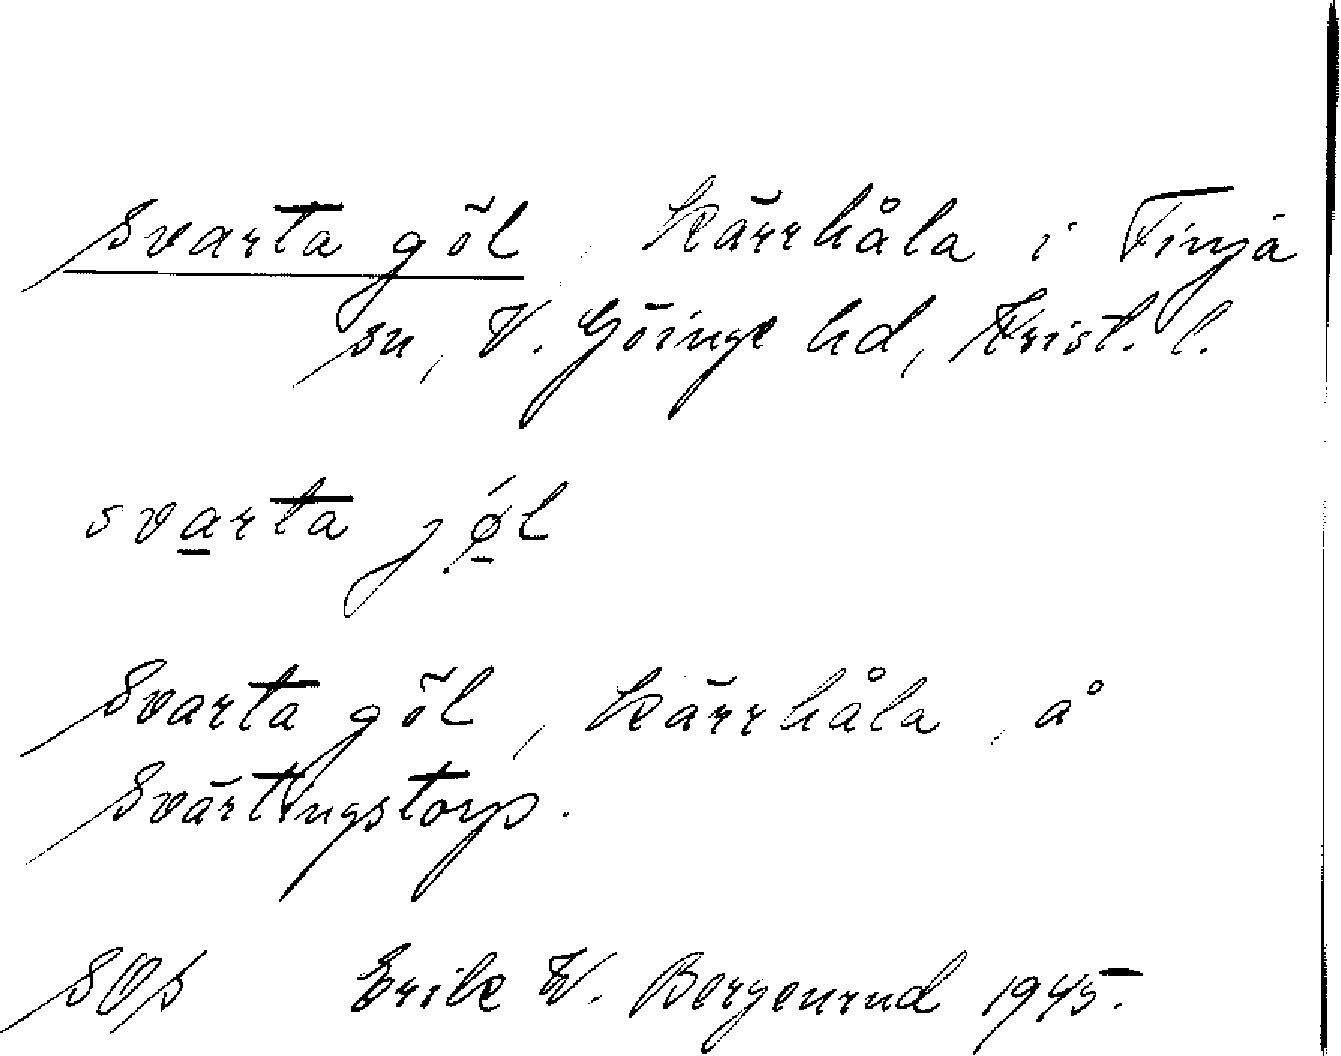 Svarta göl, Kärrhåla i Finja
sn, V. Göinge hd, Krist. l.
svarta jǿl
Svarta göl, kärrhåla, å
Svärtingstorp.
SOS Erik W. Bergenrud 1945.